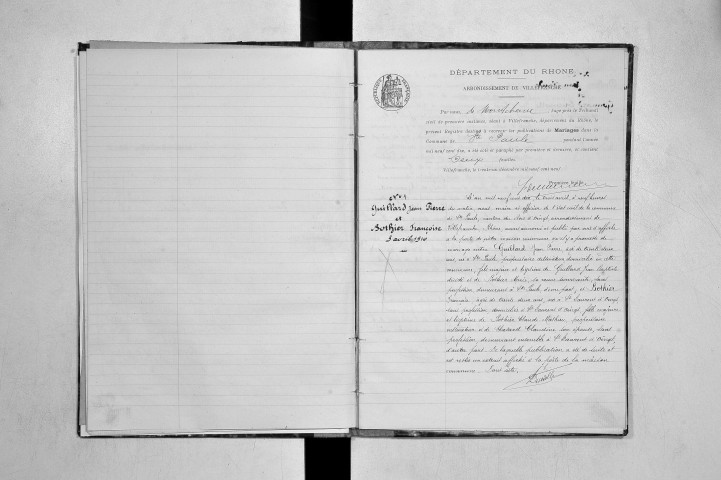 DÉPARTEMENT DU RHONE
ARRONDISSEMENT DE VILLEFRANCHE
Par nous, juge près le Tribunal
civil de première instance, séant à Villefranche, département du Rhône, le
présent Registre destiné à recevoir les publications de Mariages dans la
Commune de Ste Paule pendant l'année
mil neuf cent dix, a été coté et paraphé par première et dernière, et contient
feuillets.
Villefranche, le décembre mil neuf cent neuf.
N° 1
Guillard Jean Pierre
et
Bothier Françoise
3 avril 1910
L'an mil neuf cent dix le trois avril, à neuf heures
du matin, nous, maire et officier de l'état civil de la commune
de Ste Paule, canton du Bois d'Oingt, arrondissement de
Villefranche, Rhône, avons annoncé et publié par avis d'affiche
à la porte de notre maison commune, qu'il y a promesse de
mariage entre Guillard Jean Pierre, âgé de trente deux
ans, né à Ste Paule, propriétaire cultivateur domicilié en cette
commune, fils majeur et légitime de Guillard Jean Baptiste
décédé et de Bothier sa veuve survivante, sans
profession, demeurant à Ste Paule, d'une part, et Bothier
Françoise, âgée de trente deux ans, née à St Laurent d'Oingt
sans profession, domiciliée à St Laurent d'Oingt, fille majeure
et légitime de Bothier Claude Mathieu, propriétaire
cultivateur et de Claudine son épouse, sans
profession, demeurant ensemble à St Laurent d'Oingt,
d'autre part. De laquelle publication a été de suite et
est restée un extrait affiché à la porte de la maison
commune. Dont acte.